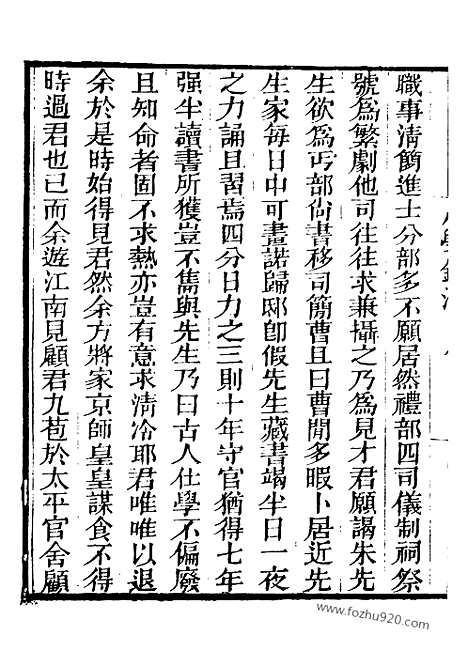 職事清簡進士分部多不願居然禮部四司儀制祠祭
號爲繁劇他司往往求兼攝之乃爲見才君願謁朱先
生欲爲丐部尙書移司簡曹且曰曹閒多暇卜居近先
生家每日中可畫諾歸邸卽假先生藏書竭半日一夜
之力誦且習焉四分日力之三則十年守官猶得七年
强半讀書所獲豈不雋與先生乃曰古人仕學不偏廢
且知命者固不求熱亦豈有意求清冷耶君唯唯以退
余於是時始得見君然余方將家京師皇皇謀食不得
時過君也已而余遊江南見顧君九苞於太平官舍顧
www.fozhu920.com